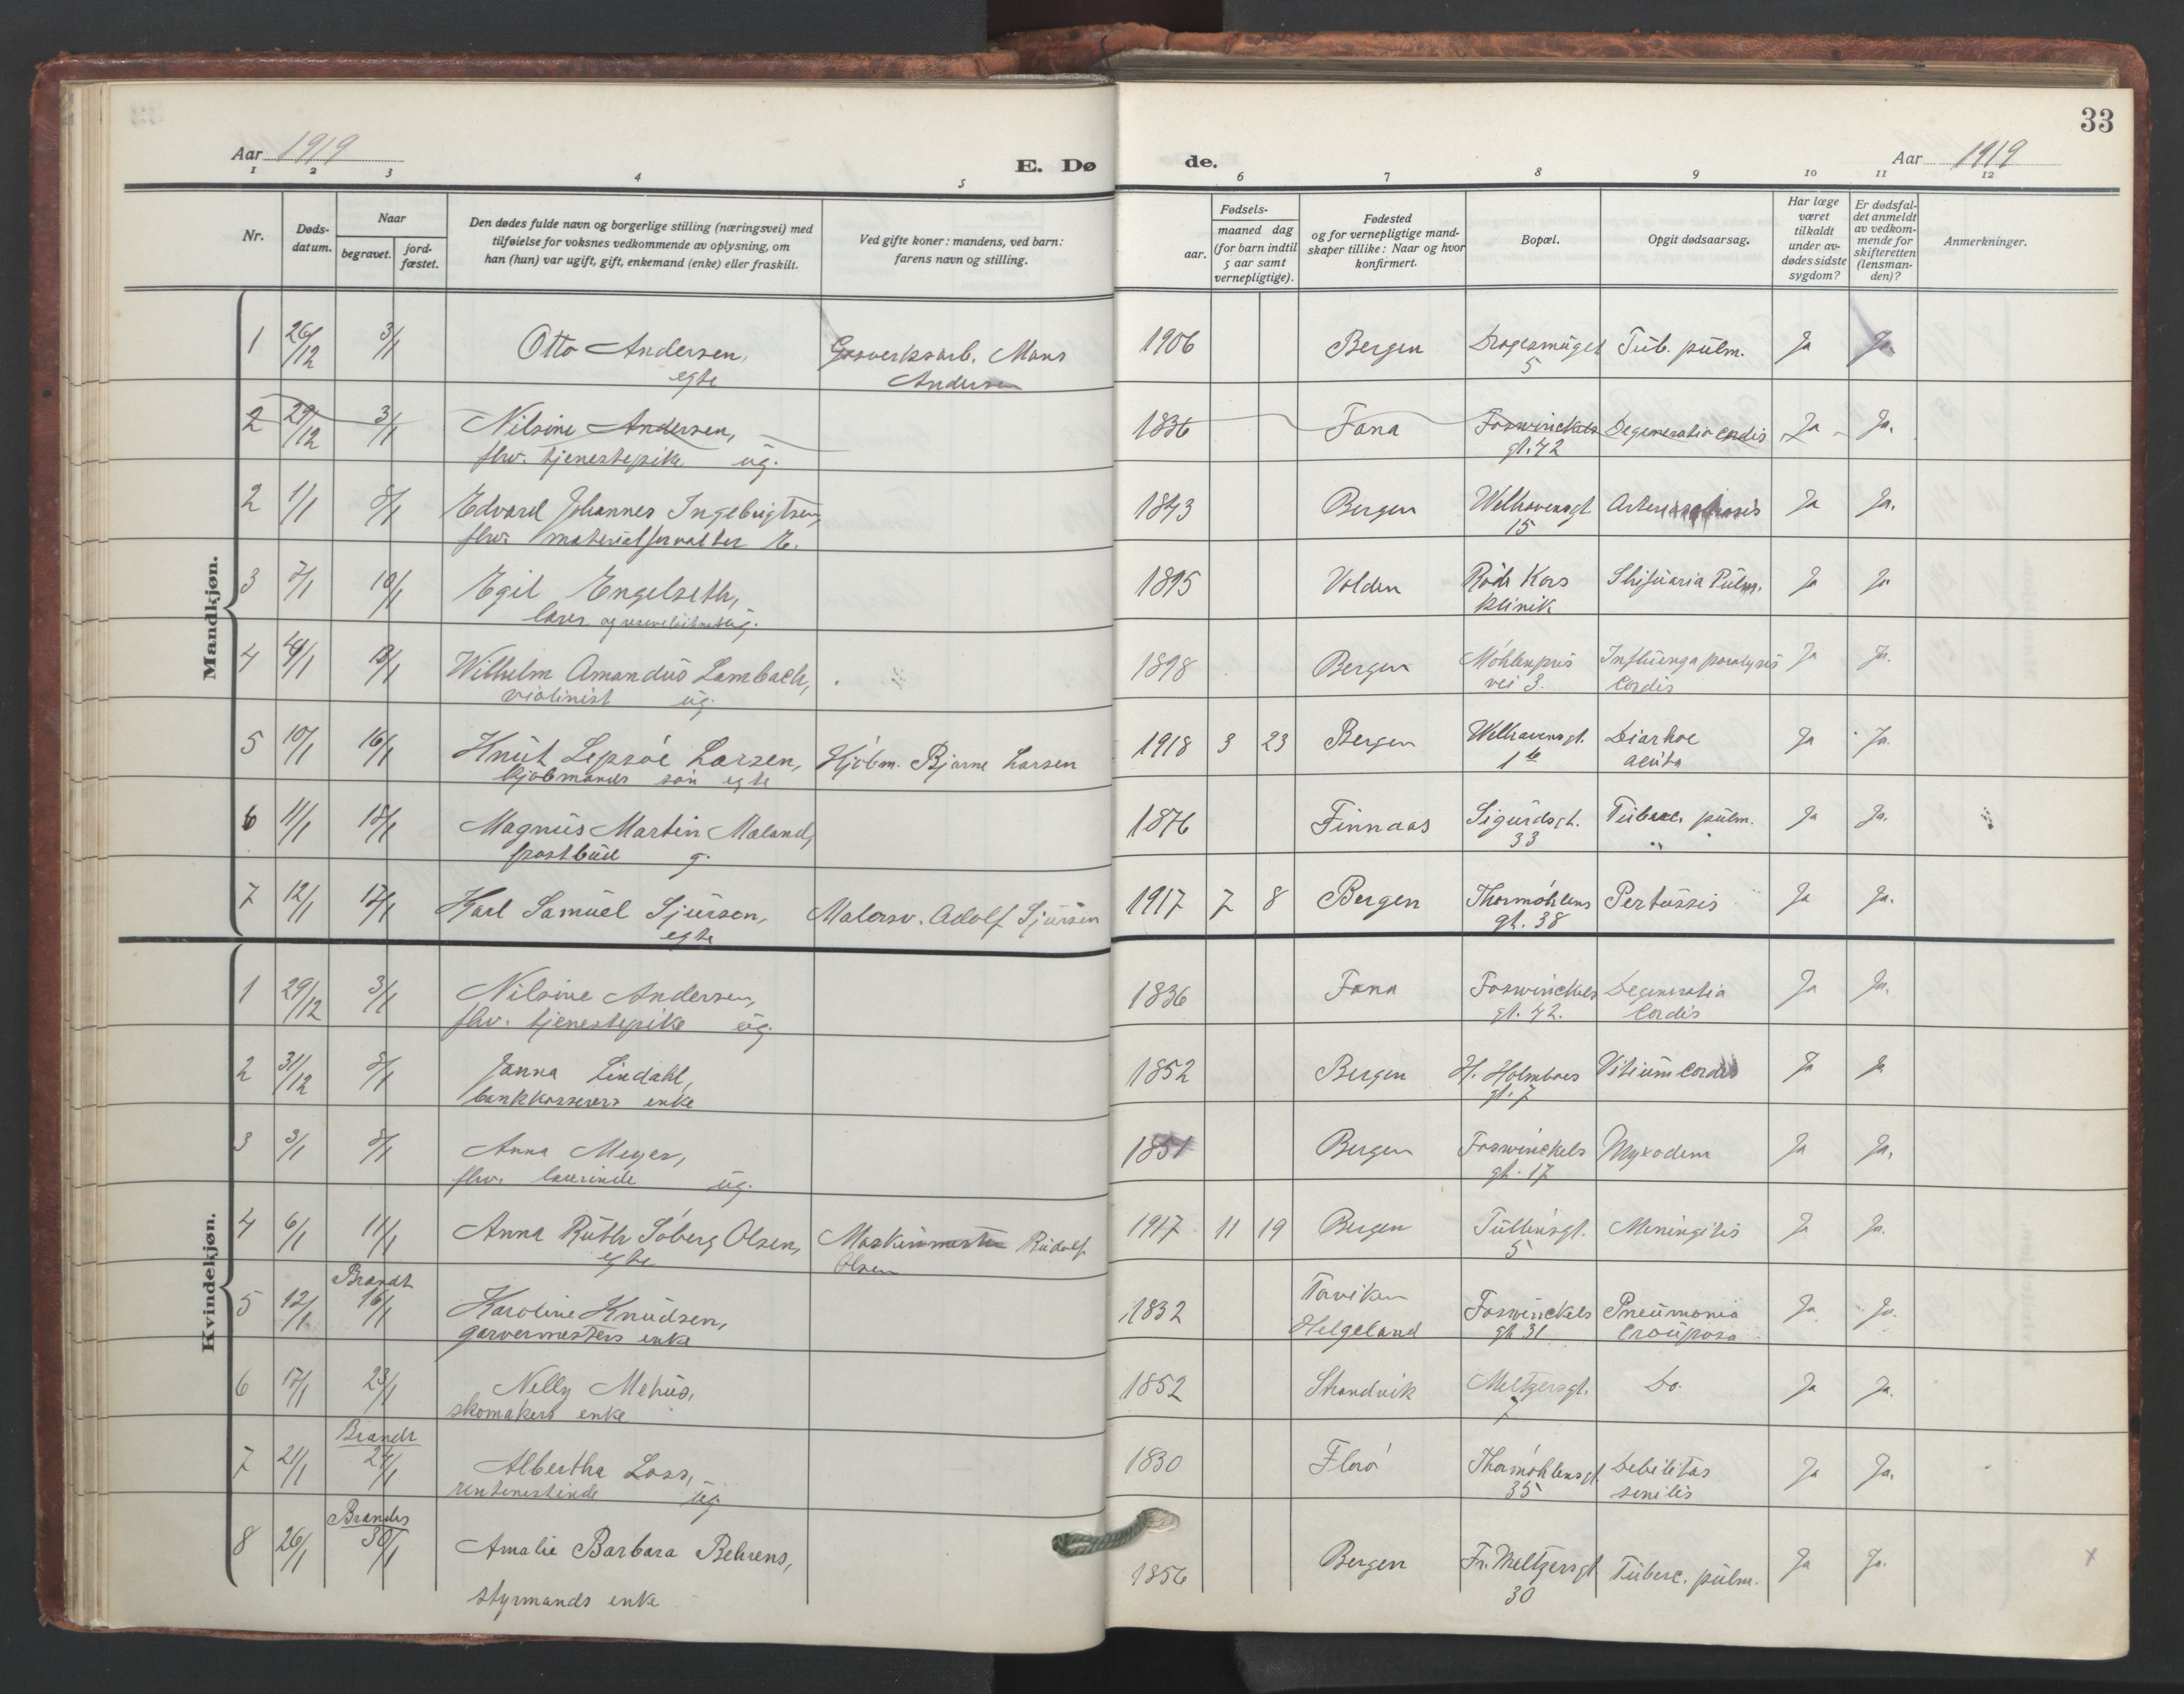 33
Aar 1919
E. Dø de.
Aar 1919
1 2 3 4 5 6 7 8 9 10 11 12
Nr.
Døds-
datum.
Naar
begravet.
jord-
fæstet.
Den dødes fulde navn og borgerlige stilling (næringsvei) med
tilføielse for voksnes vedkommende av oplysning, om
han (hun) var ugift, gift, enkemand (enke) eller fraskilt.
Ved gifte koner: mandens, ved barn:
farens navn og stilling.
Fødsels-
aar.
maaned dag
(for barn indtil
5 aar samt
vernepligtige).
Fødested
og for vernepligtige mand-
skaper tillike: Naar og hvor
konfirmert.
Bopæl.
Opgit dødsaarsag.
Har læge
været
tilkaldt
under av-
dødes sidste
sygdom?
Er dødsfal-
det anmeldt
av vedkom-
mende for
skifteretten
(lensman-
den)?
Anmerkninger.
Mandkjøn.
1 26/12 3/1 Otto Andersen, Gasverksarb. Mons 1906 Bergen Dragesmuget Tub. pulm. Ja Ja
egte Andersen 5
2 29/12 3/1 Nilsine Andersen, 1836 Fana Foswinckels Degeneratio cordis Ja Ja.
fhv. tjenestepike ug. gt. 42
2 1/1 8/1 Edvard Johannes Ingebrigtsen, 1843 Bergen Welhavensgt. Ja Ja.
fhv. materialforvalter E. 15
3 7/1 10/1 Egil Engelseth, 1895 Volden Røde Kors Pulm. Ja Ja
lærer og ug. klinik
4 9/1 13/1 Wilhelm Amandus Lambach, 1898 Bergen Møhlenpris Influenza paralysis Ja Ja.
violinist ug. vei 3. Cordis
5 10/1 16/1 Knut Lepsøe Larsen, Kjøbm. Bjarne Larsen 1918 3 23 Bergen Welhavensgt. Diarhoe Ja Ja.
kjøbmands søn egte 1 b acuta
6 11/1 18/1 Magnus Martin Mæland, 1876 Finnaas Sigurdsgt. Tuberc. pulm. Ja Ja.
postbud g. 33
7 12/1 17/1 Karl Samuel Sjursen, Malersv. Adolf Sjursen 1917 7 8 Bergen Thormøhlens Pertussis Ja Ja.
egte gt. 38
Kvindekjøn.
1 29/12 3/1 Nilsine Andersen, 1836 Fana Foswinckels Degeneratio Ja Ja.
fhv. tjenestepike ug. gt. 42. Cordis
2 31/12 8/1 Janna Lindahl, 1852 Bergen H. Holmboes Vitium Cordis Ja Ja
bankkasserers enke gt. 7
3 3/1 8/1 Anna Meyer, 1851 Bergen Foswinckels Myxodem Ja Ja.
fhv. lærerinde ug. gt. 17
4 6/1 11/1 Anna Ruth Søberg Olsen, Maskinmester Rudolf 1917 11 19 Bergen Tullinsgt. Meningitis Ja Ja.
egte Olsen 5
Brændt
5 12/1 16/1 Karoline Knudsen, 1832 Tarviken Foswinckels Pneumonia Ja Ja.
garvermesters enke Helgeland gt. 31 Crouposa
6 17/1 23/1 Nelly Mehus, 1852 Strandvik Meltzersgt. Do. Ja Ja.
skomakers enke 7
Brændt
7 21/1 24/1 Albertha Loss, 1830 Florø Thormøhlensgt. Debilitas Ja Ja.
rentenistinde ug. 35 senilis
Brændes
8 26/1 30/1 Amalie Barbara Behrens, 1856 Bergen Fr. Meltzersgt. Tuberc. pulm. Ja Ja. x
styrmands enke 30